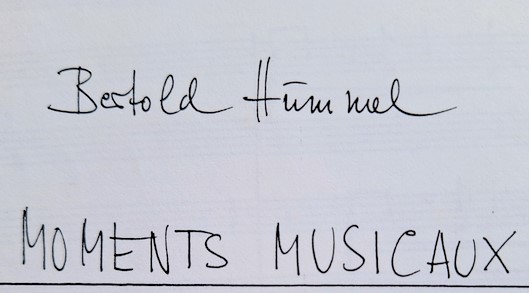 Bertold Hummel
MOMENTS MUSICAUX